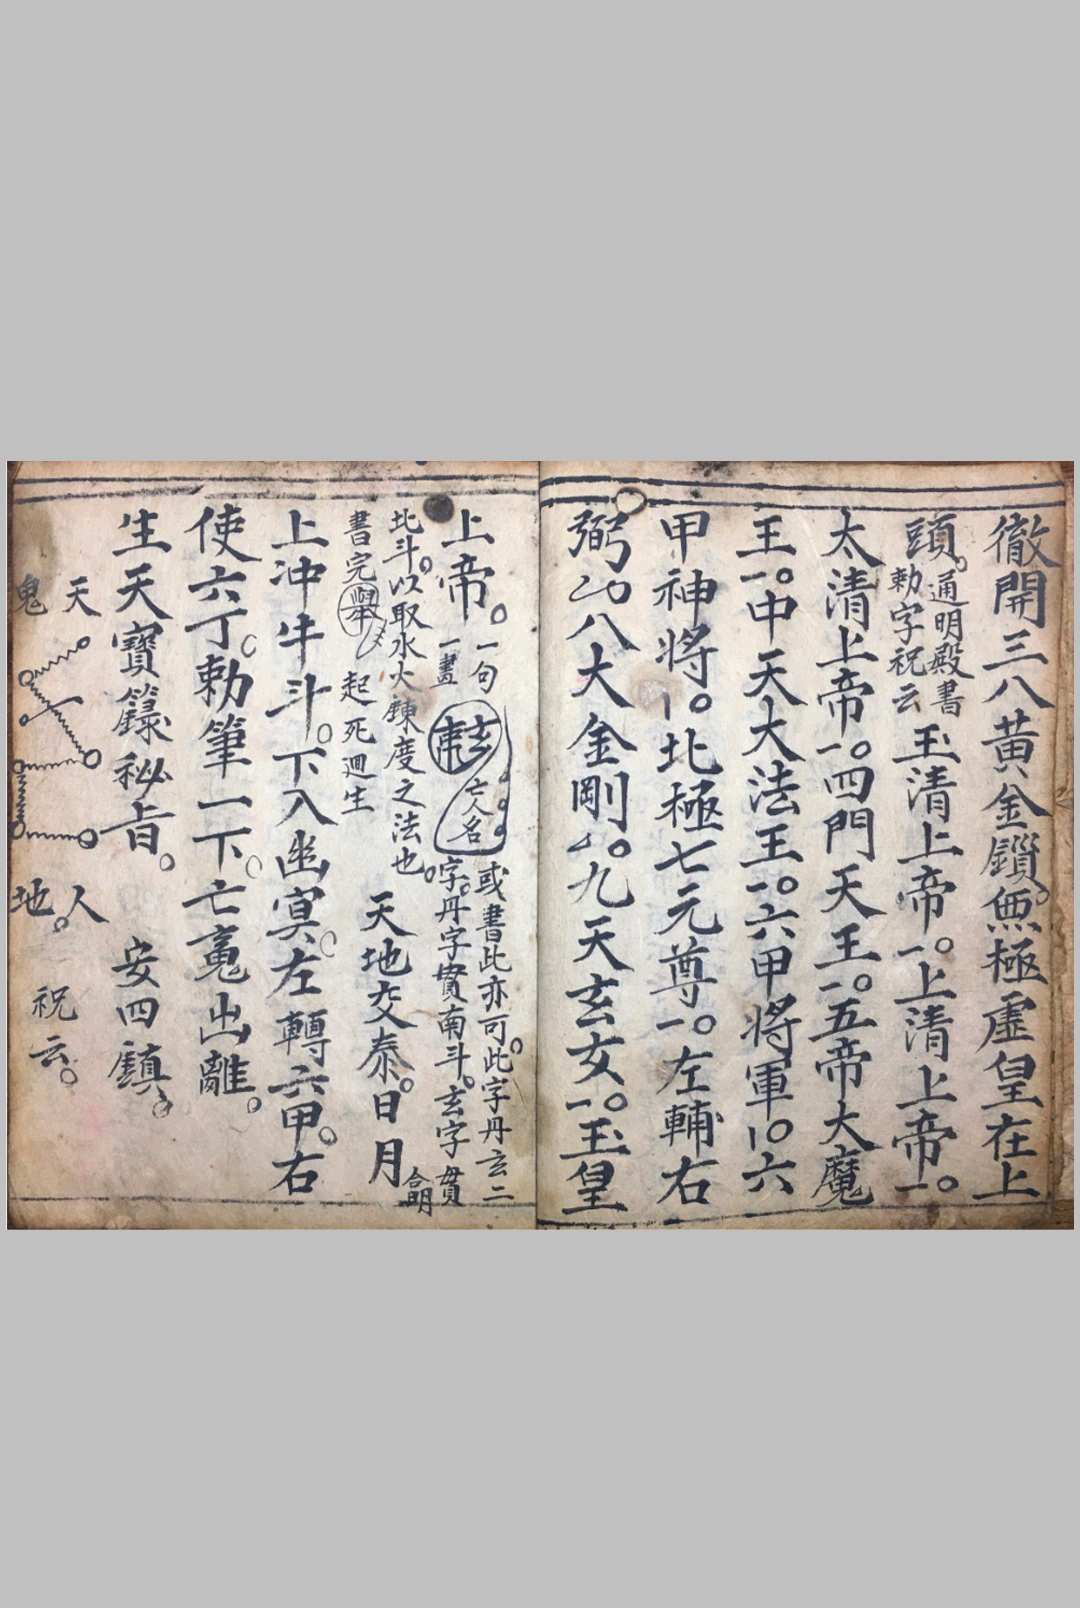 徹開三八黃金鎖。無極虛皇在上
頭。通明殿書
勅字祝云
玉清上帝一。上清上帝一。
太清上帝一。四門天王一。五帝大魔
王一。中天大法王一。六甲將軍一。六
甲神將一。北極七元尊一。左輔右
弼。八大金剛。九天玄女一。玉皇
上帝。一句
一畫
亡人名
或書此亦可。此字丹玄二
字。丹字貫南斗。玄字貫
北斗。以取水火鍊度之法也。
書完
起死迴生
天地交泰。日月合明
上沖牛斗。下入幽冥。左轉六甲。右
使六丁。勅筆一下。亡魂出離。
生天寶籙秘旨。
天
鬼
人
地。
安四鎮。
祝云。